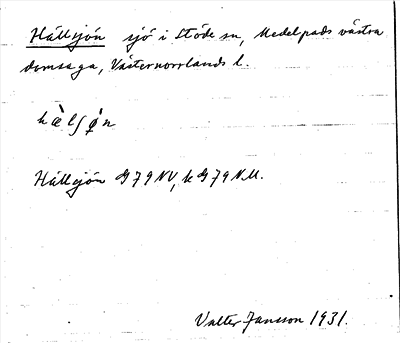 Hällsjön sjö i Stöde sn, Medelpads västra
domsaga, Västernorrlands l.
hæ̀lʃø̀n
Hällsjön G79NV, k G79NM.
Valter Jansson 1931.